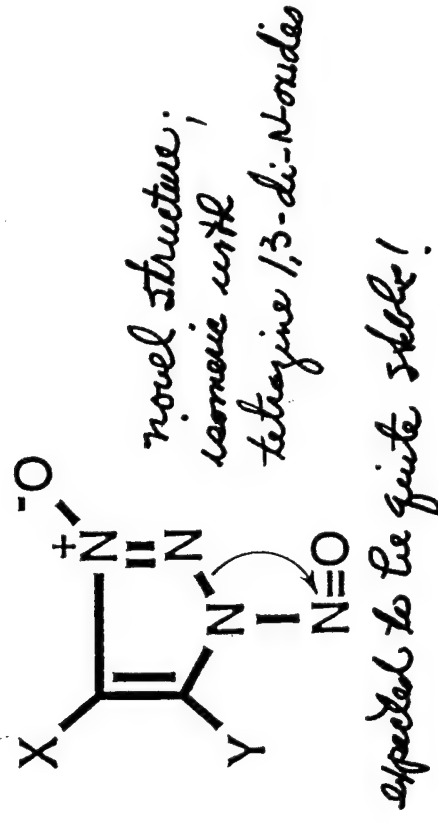 -O
X
+
N
N
Y
N
N=O
novel structure;
isomeric with
tetrazine 1,3-di-N-oxides
expected to be quite stable!